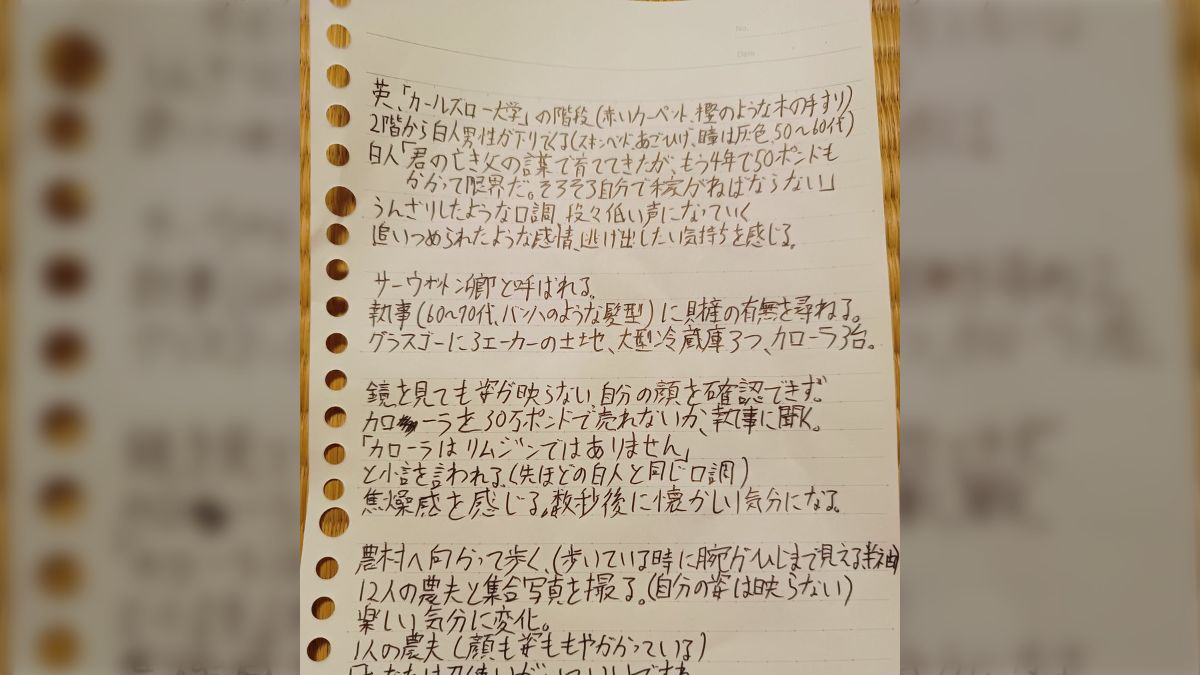 No.
Date
英、「カールズロー大学」の階段(赤いカーペット、樫のような木の手すり)
2階から白人男性が下りてくる(スキンヘッド、あごひげ、瞳は灰色、50〜60代)
白人「君の亡き父の言葉で育ててきたが、もう4年で50ポンドも
かかって限界だ。そろそろ自分で稼がねばならない」
うんざりしたような口調、段々低い声になっていく
追いつめられたような感情、逃げ出したい気持ちを感じる。
サーウガトン卿と呼ばれる。
執事(60〜70代、バッハのような髪型)に財産の有無を尋ねる。
グラスゴーに3エーカーの土地、大型冷蔵庫3つ、カローラ3台。
鏡を見ても姿が映らない、自分の顔を確認できず。
カローラを30万ポンドで売れないか、執事に聞く。
「カローラはリムジンではありません」
と小言を言われる、(先ほどの白人と同じ口調)
焦燥感を感じる。数秒後に懐かしい気分になる。
農村へ向かって歩く、(歩いている時に腕がひじまで見える半袖)
12人の農夫と集合写真を撮る。(自分の姿は映らない)
楽しい気分に変化。
1人の農夫(顔も姿ももやがかっている)